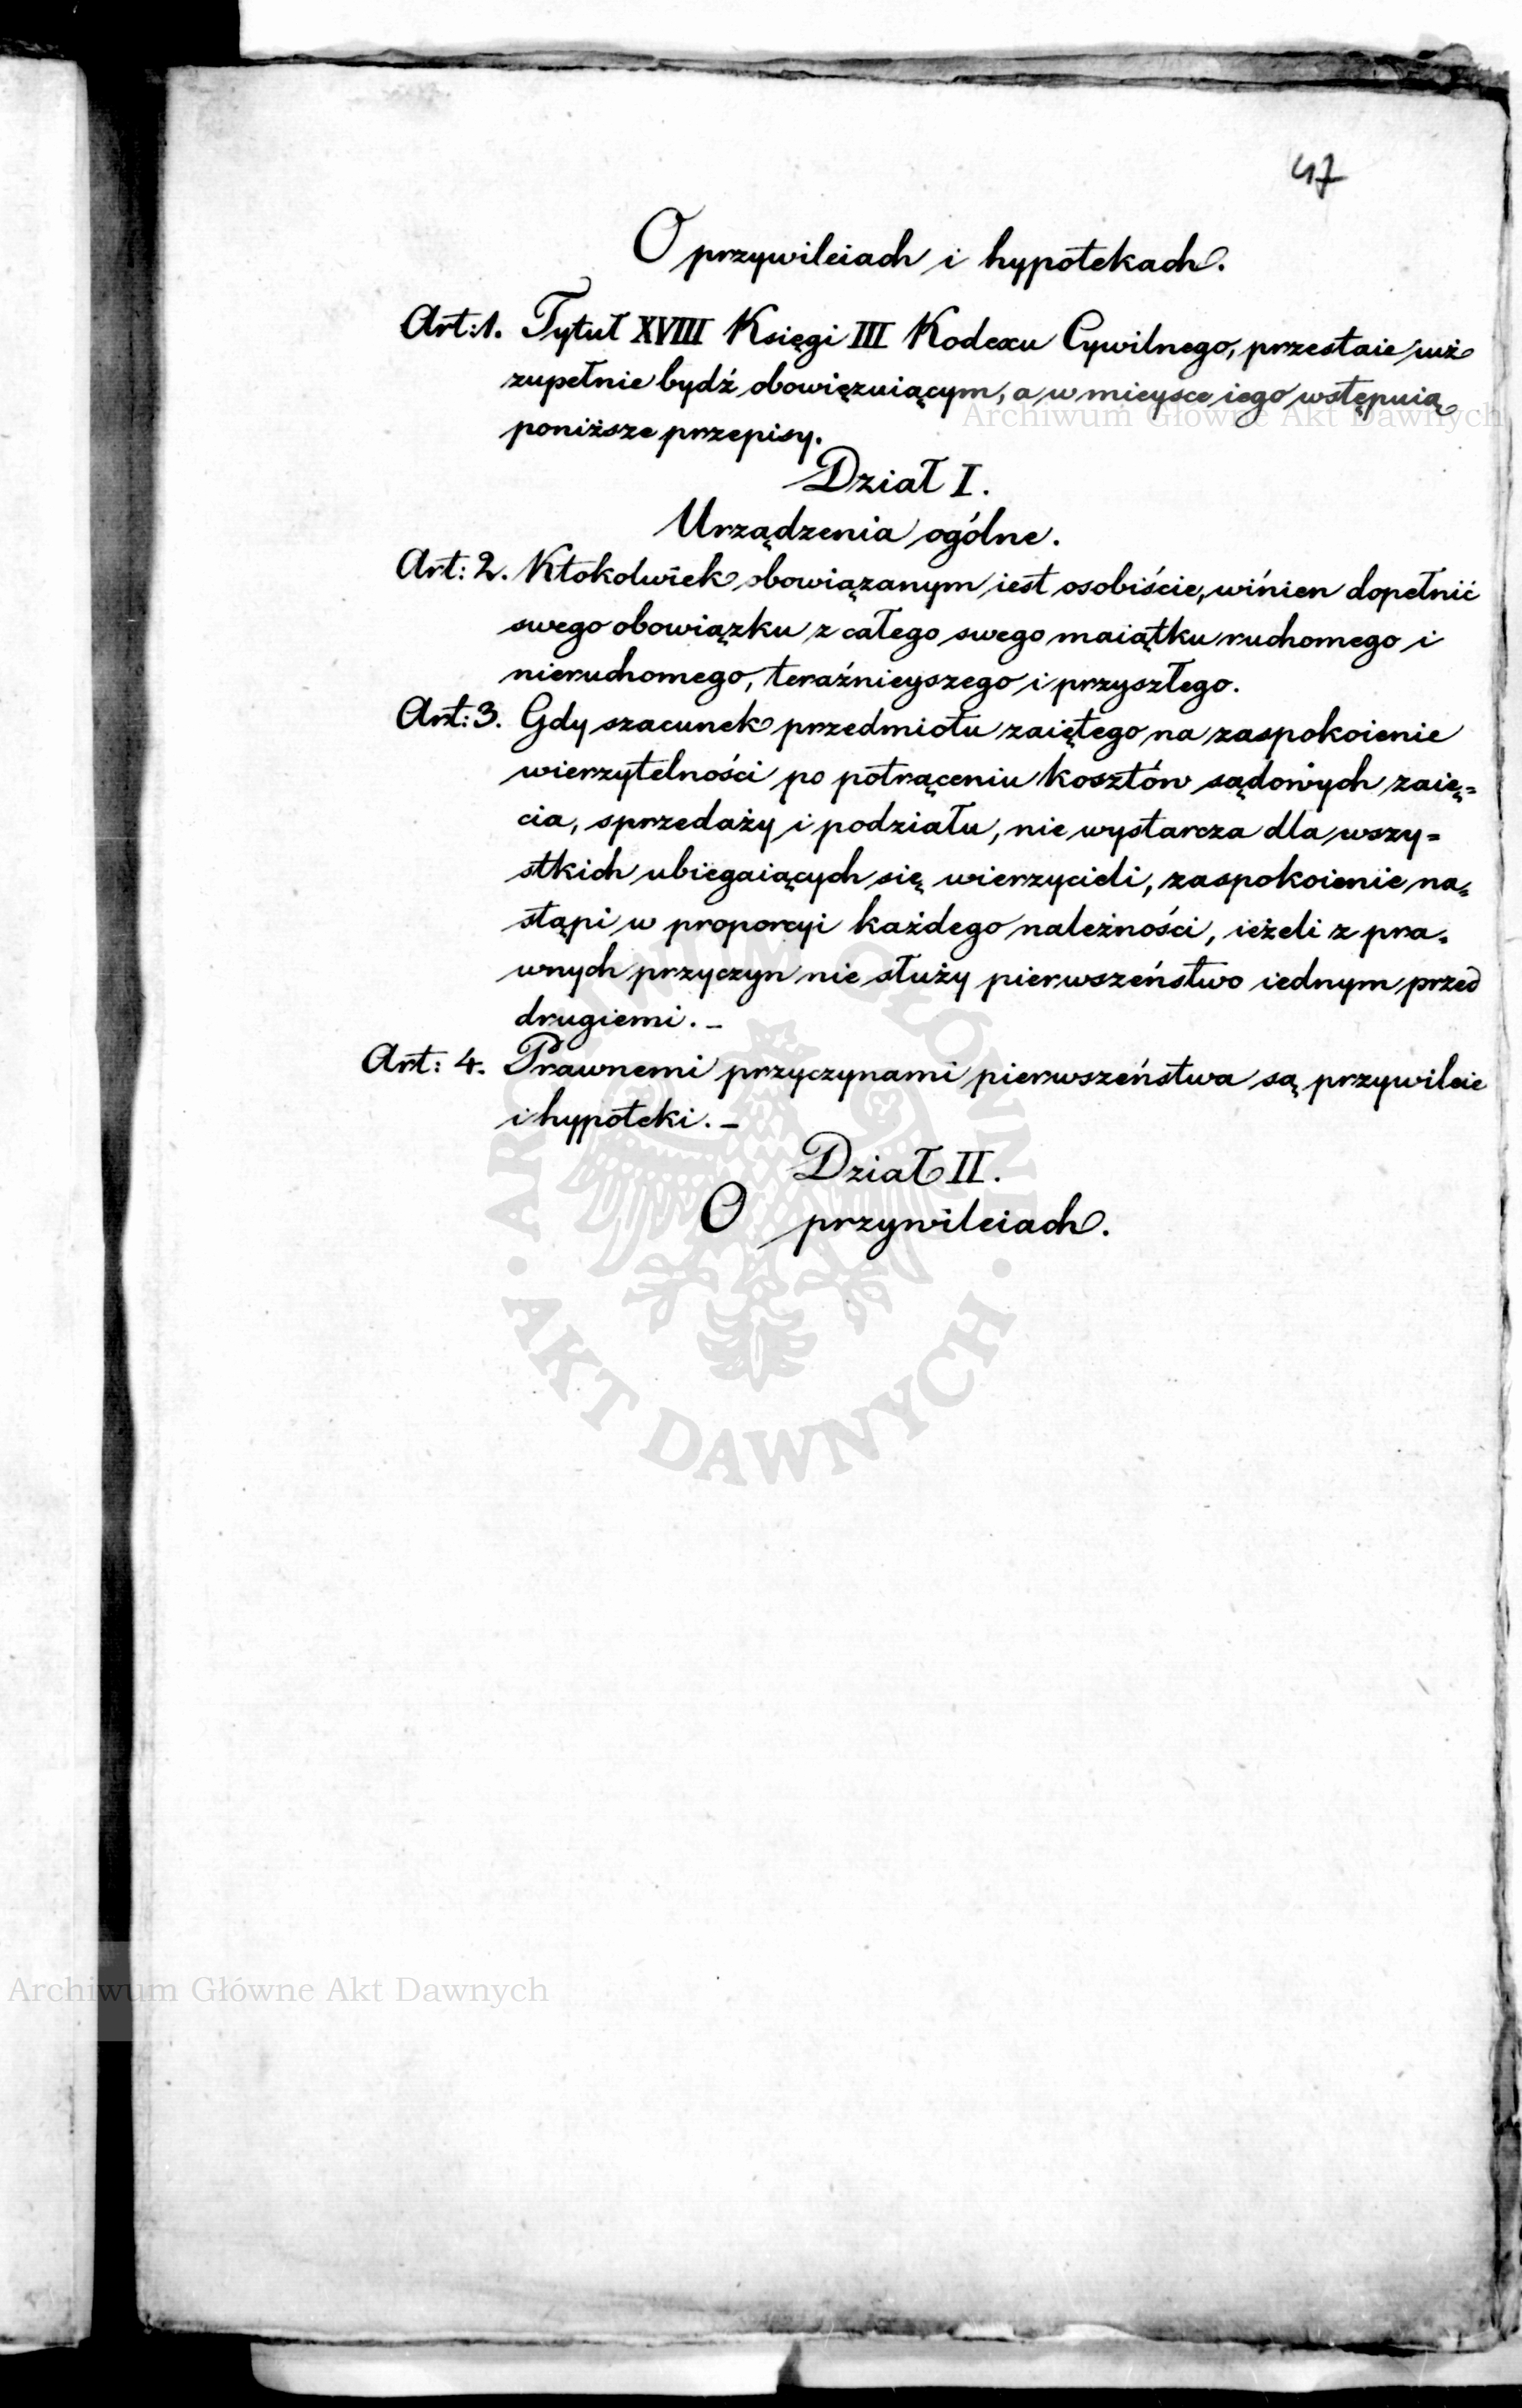 47
O przywileiach i hypotekach.
Art: 1. Tytuł XVIII Księgi III Kodexu Cywilnego, przestaie iuż
zupełnie bydź obowięzuiącym, a w mieysce iego wstępuią
Archiwum Główne Akt Dawnych
poniższe przepisy.
Dział I.
Urządzenia ogólne.
Art: 2. Ktokolwiek obowiązanym iest osobiście, winien dopełnić
swego obowiązku z całego swego maiątku ruchomego i
nieruchomego, teraźnieyszego i przyszłego.
Art: 3. Gdy szacunek przedmiotu zaiętego na zaspokoienie
wierzytelności po potrąceniu kosztów sądowych zaię=
cia, sprzedaży i podziału, nie wystarcza dla wszy=
stkich ubiegaiących się wierzycieli, zaspokoienie na=
stąpi w proporcyi każdego należności, ieżeli z pra=
wnych przyczyn nie służy pierwszeństwo iednym przed
drugiemi. –
Art: 4. Prawnemi przyczynami pierwszeństwa są przywileie
i hypoteki. –
Dział II.
O przywileiach.
ARCHIWUM GŁÓWNE
· AKT DAWNYCH ·
Archiwum Główne Akt Dawnych